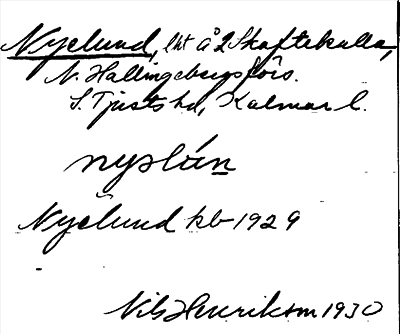 Nyelund, lht å 2 Skaftekulla,
N. Hallingebergs förs.
S. Tjusts hd, Kalmar l.
nyslún
Nyelund kb 1929
Nils Henrikson 1930